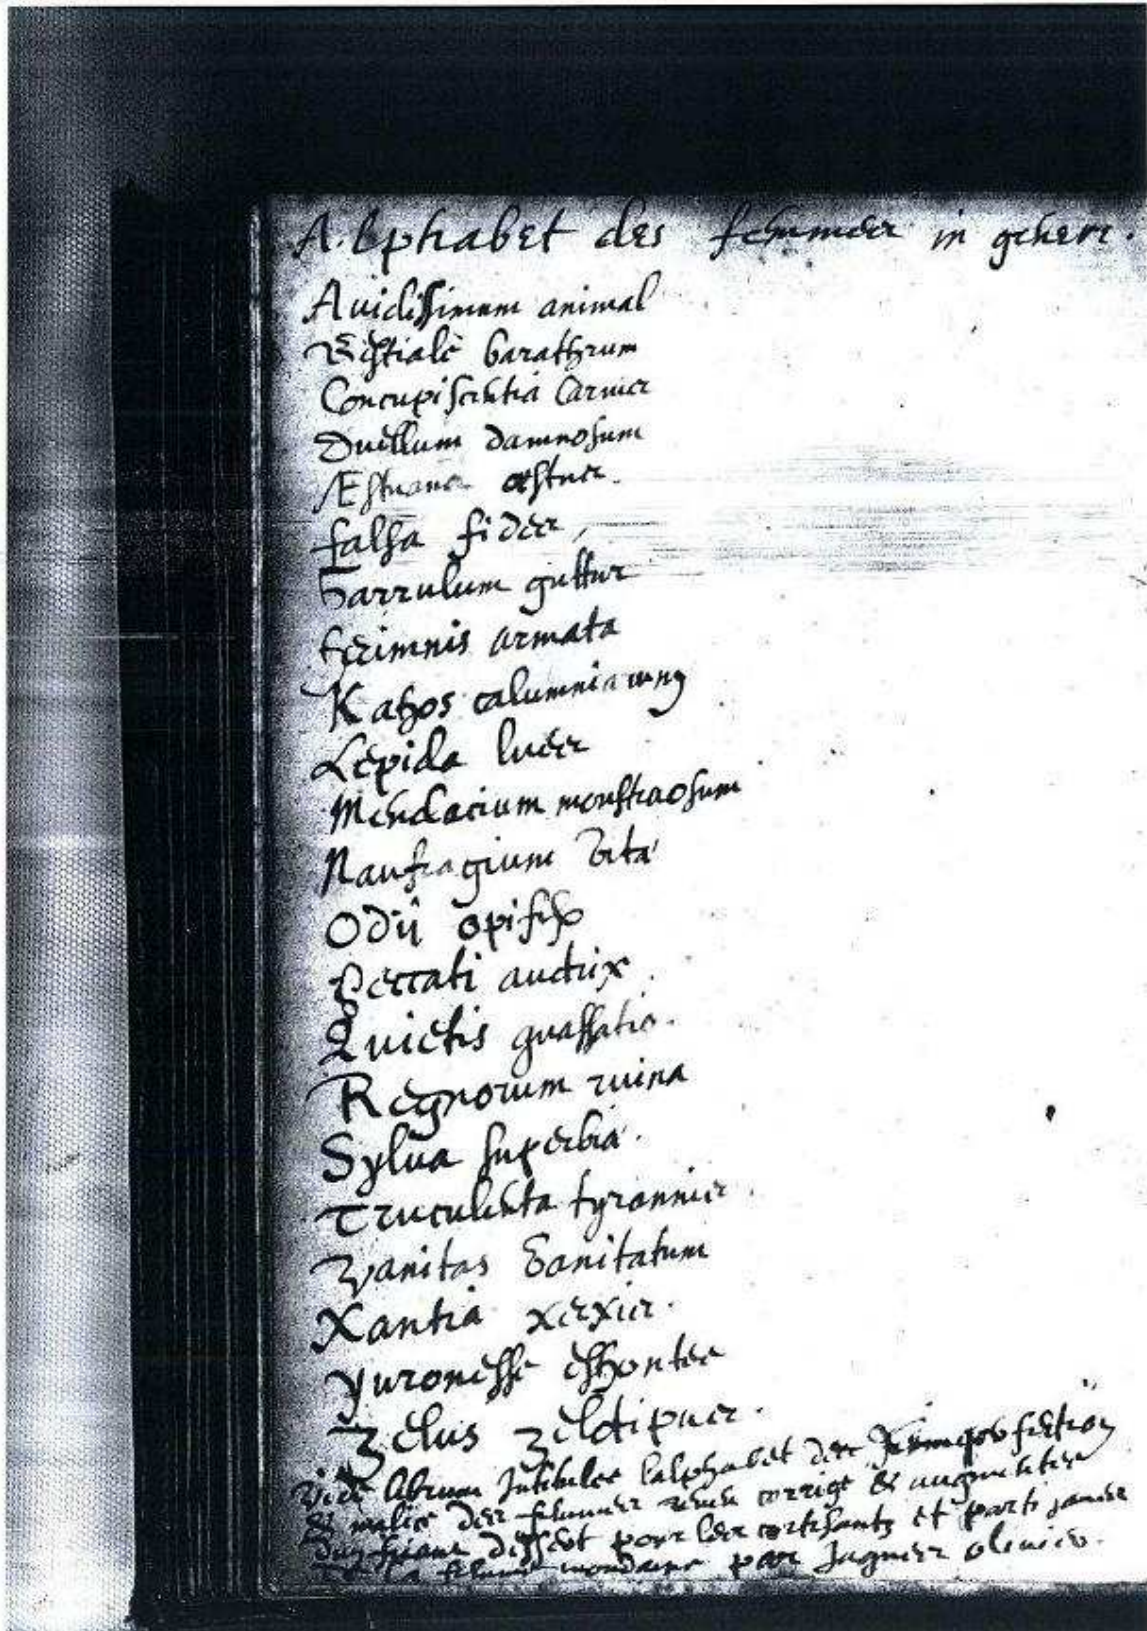 Alphabet des femmes in genere.
Avidissimum animal
Bestiale barathrum
Concupiscentia Carnis
Duellum damnosum
Æstuans æstus.
falsa fides,
Garrulum guttur
armata
Kathos
Lepida lues
Mendacium monstraosum
Naufragium vitæ
Odii opifex
Peccati auctrix
Quietis quassatio.
Regnorum ruina
Sylva superbiæ.
Truculenta tyrannis.
Vanitas Vanitatum
Xantia xerxis.
yuronesse eshontee
Zelus zelotipus.
Vide librum Intitulee lalphabet des
& malice des femmes reveu corrige & augmentee
dissert pour les cortisants et partisantes
de la femme mondaine par Jaques olivier.